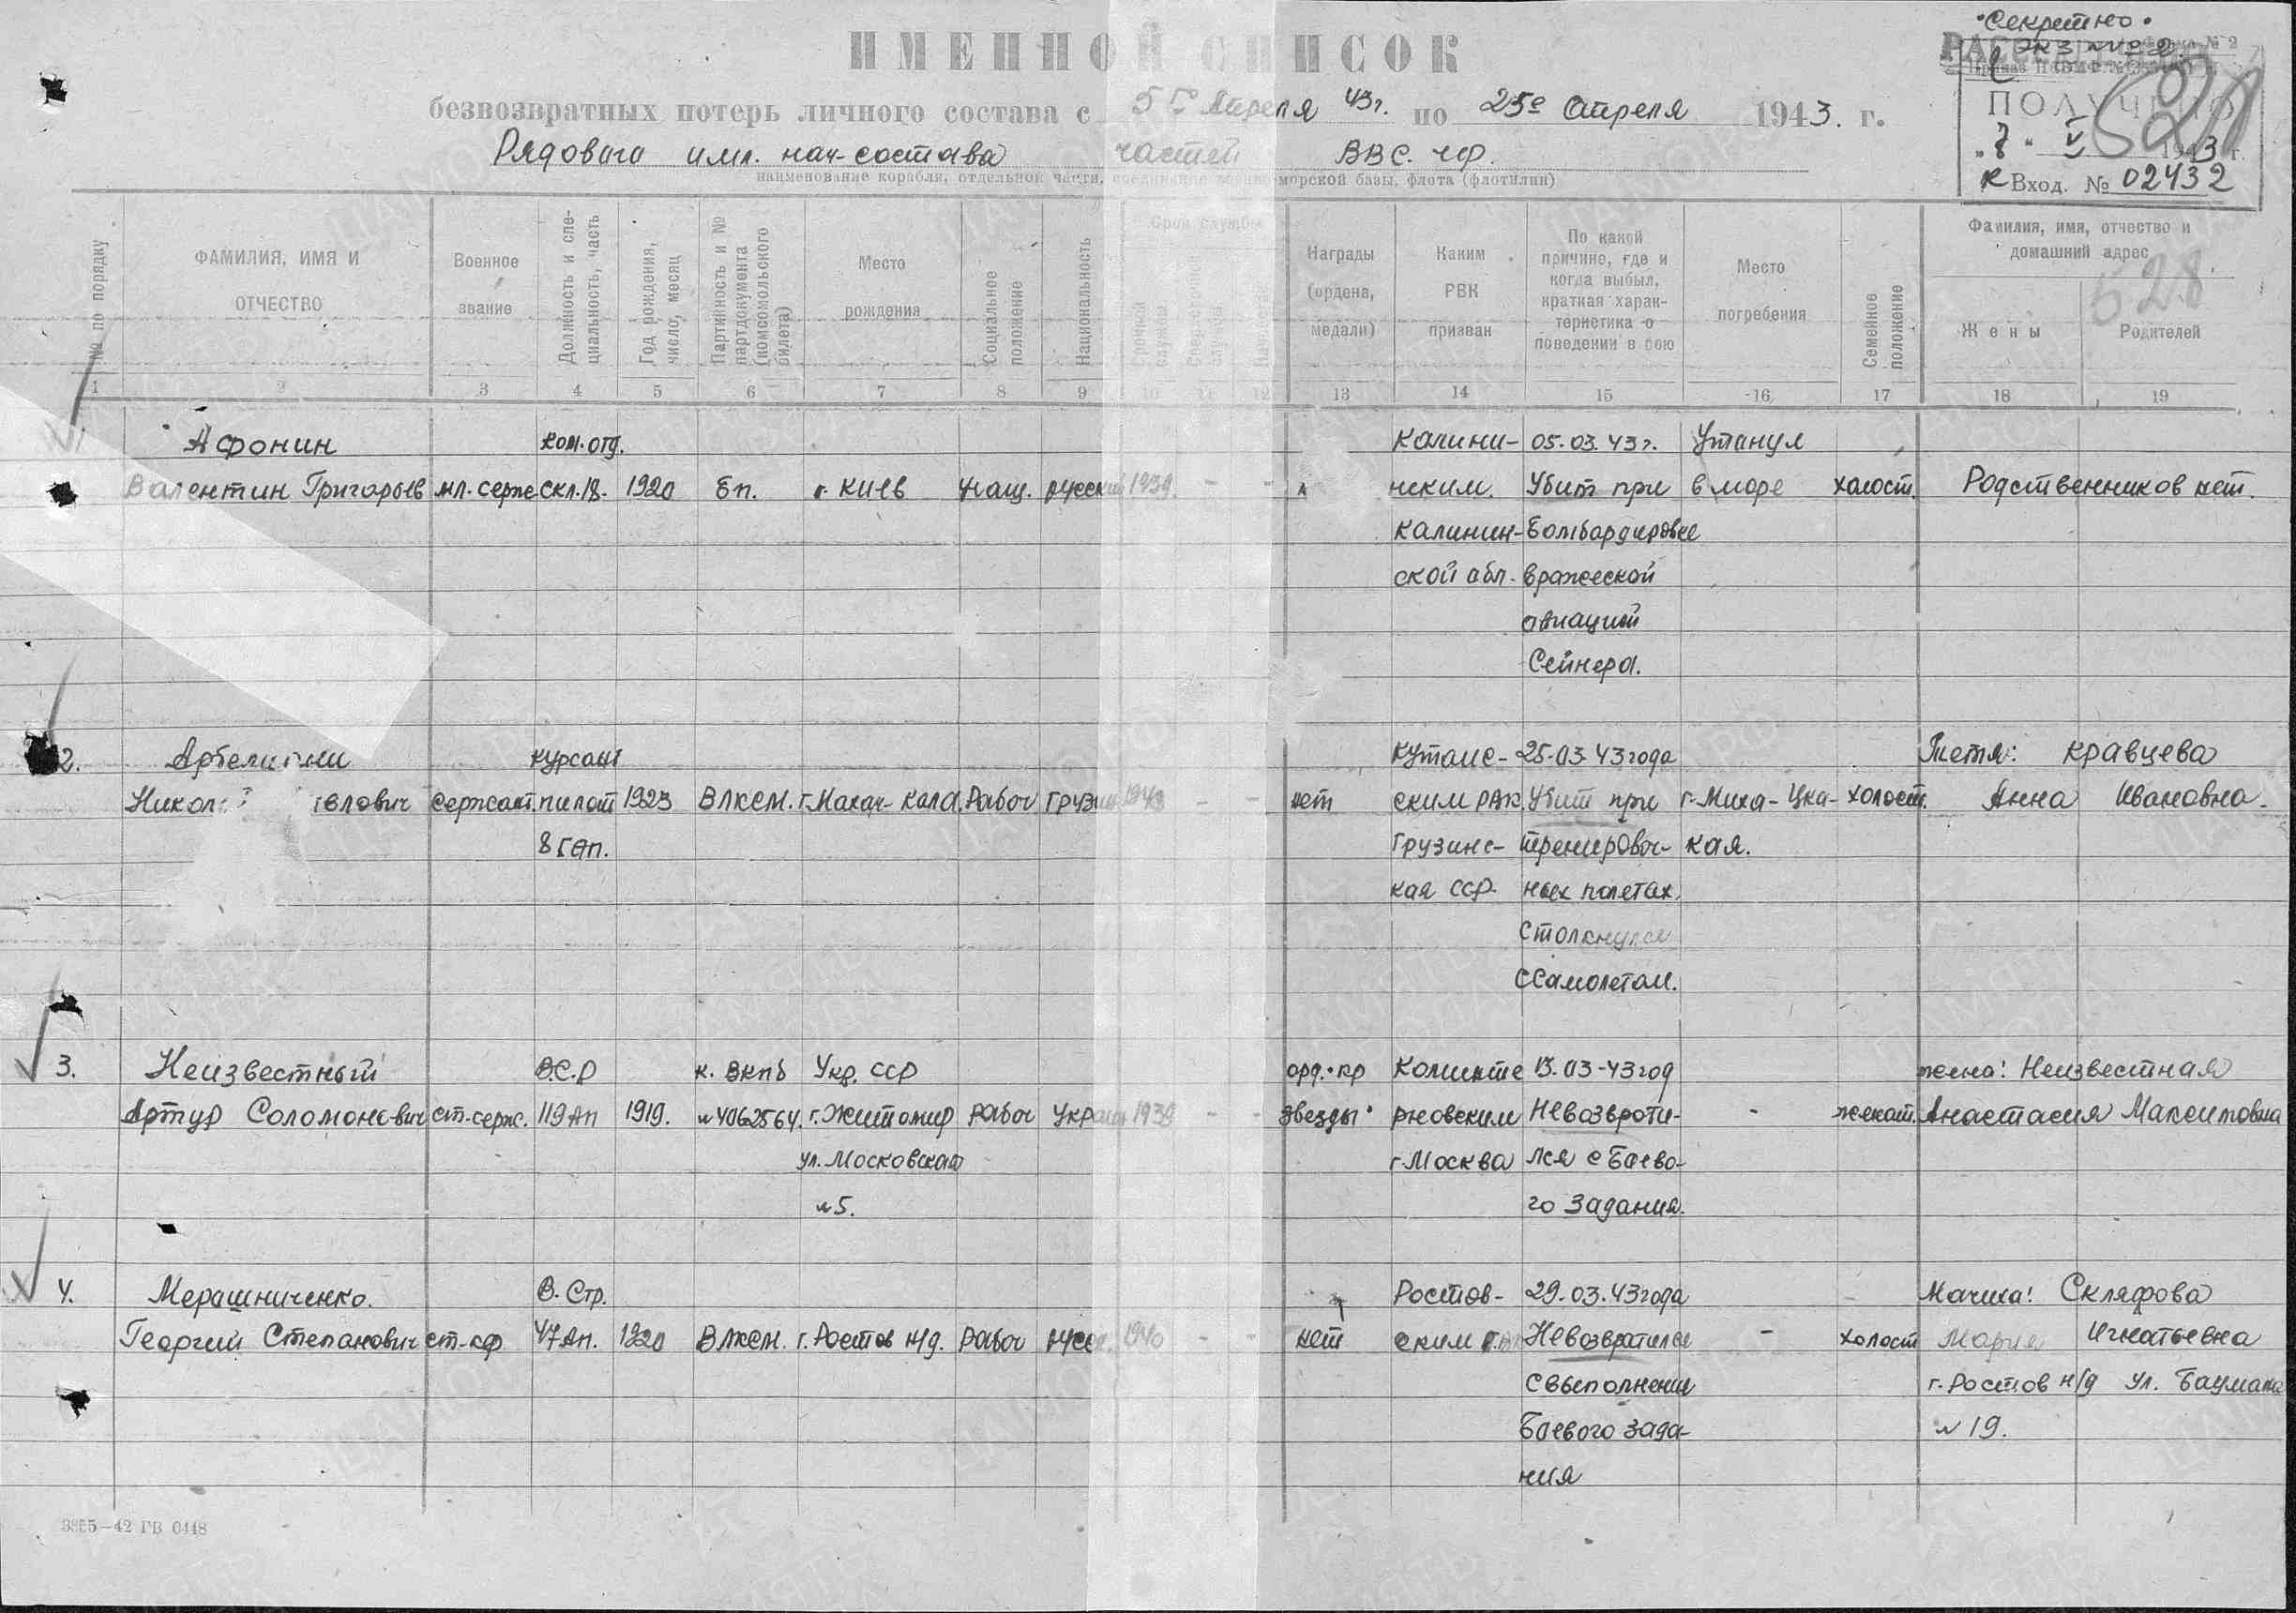 Секретно
экз № 2
РАССЕКРЕЧЕНО
Форма № 2
ПОЛУЧЕНО
"8" V 1943 г.
Вход. № 02432
528
ИМЕННОЙ СПИСОК
безвозвратных потерь личного состава с 5го Апреля 43г. по 25е Апреля 1943. г.
Рядового и мл. нач-состава частей ВВС. ЧФ.
наименование корабля, отдельной части, соединения военно-морской базы, флота (флотилии)
№ по порядку
ФАМИЛИЯ, ИМЯ И ОТЧЕСТВО
Военное звание
Должность и специальность, часть
Год рождения, число, месяц
Партийность и № партдокумента (комсомольского билета)
Место рождения
Социальное положение
Национальность
Срок службы
Срочной службы
Награды (ордена, медали)
Каким РВК призван
По какой причине, где и когда выбыл, краткая характеристика о поведении в бою
Место погребения
Семейное положение
Фамилия, имя, отчество и домашний адрес
Жены
Родителей
1 2 3 4 5 6 7 8 9 10 11 12 13 14 15 16 17 18 19
1 Афонин ком. отд. Калини- 05.03.43г. Утанул
Валентин Григорьев мл. серж скл.18. 1920 бп. г. Киев учащ. русский 1939 - - ским. Убит при в море холост. Родственников нет.
Калинин- Бомбардировке
ской обл. вражеской
авиацией
Сейнера.
2. курсант Кутаис- 25.03.43года Тетя: Кравцева
сержант. пилот 1923 ВЛКСМ. г.Махач-Кала. Рабоч грузин - - нет ским РВК. Убит при г. Миха-Цха- холост. Анна Ивановна.
8ГАп. Грузинс- тренировоч- кая.
кая ССР. ных полетах.
Столкнулся
с Самолетом.
3. Неизвестный В.С.Р к. ВКПб Укр. ССР орд. кр Коминте 13.03-43год жена: Неизвестная
Артур Соломонович ст-серж. 119 Ап 1919. №4062564. г. Житомир рабоч Украин 1939 - - звезды рновским Невозврати- - женат. Анастасия Максимовна
ул. Московская г.Москва лся с Баево-
№5. го Задания.
4. Мерашниченко. В. Стр. Ростов- 29.03.43года Мачиха: Склярова
Георгий Степанович ст-кф 47Ап. 1920 ВЛКСМ. г. Ростов н/д. рабоч русск. 1940 - - нет ским Невозвратился - холост Мария Игнатьевна
с выполнения г. Ростов н/д ул. Баумана
Баевого зада- №19.
ния
3865—42 ГВ 0448